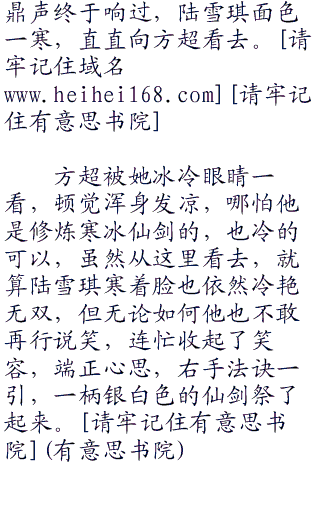 鼎声终于响过，陆雪琪面色
一寒，直直向方超看去。[请
牢记住域名
www.heihei168.com][请牢记
住有意思书院]
方超被她冰冷眼睛一
看，顿觉浑身发凉，哪怕他
是修炼寒冰仙剑的，也冷的
可以，虽然从这里看去，就
算陆雪琪寒着脸也依然冷艳
无双，但无论如何他也不敢
再行说笑，连忙收起了笑
容，端正心思，右手法诀一
引，一柄银白色的仙剑祭了
起来。[请牢记住有意思书
院](有意思书院)